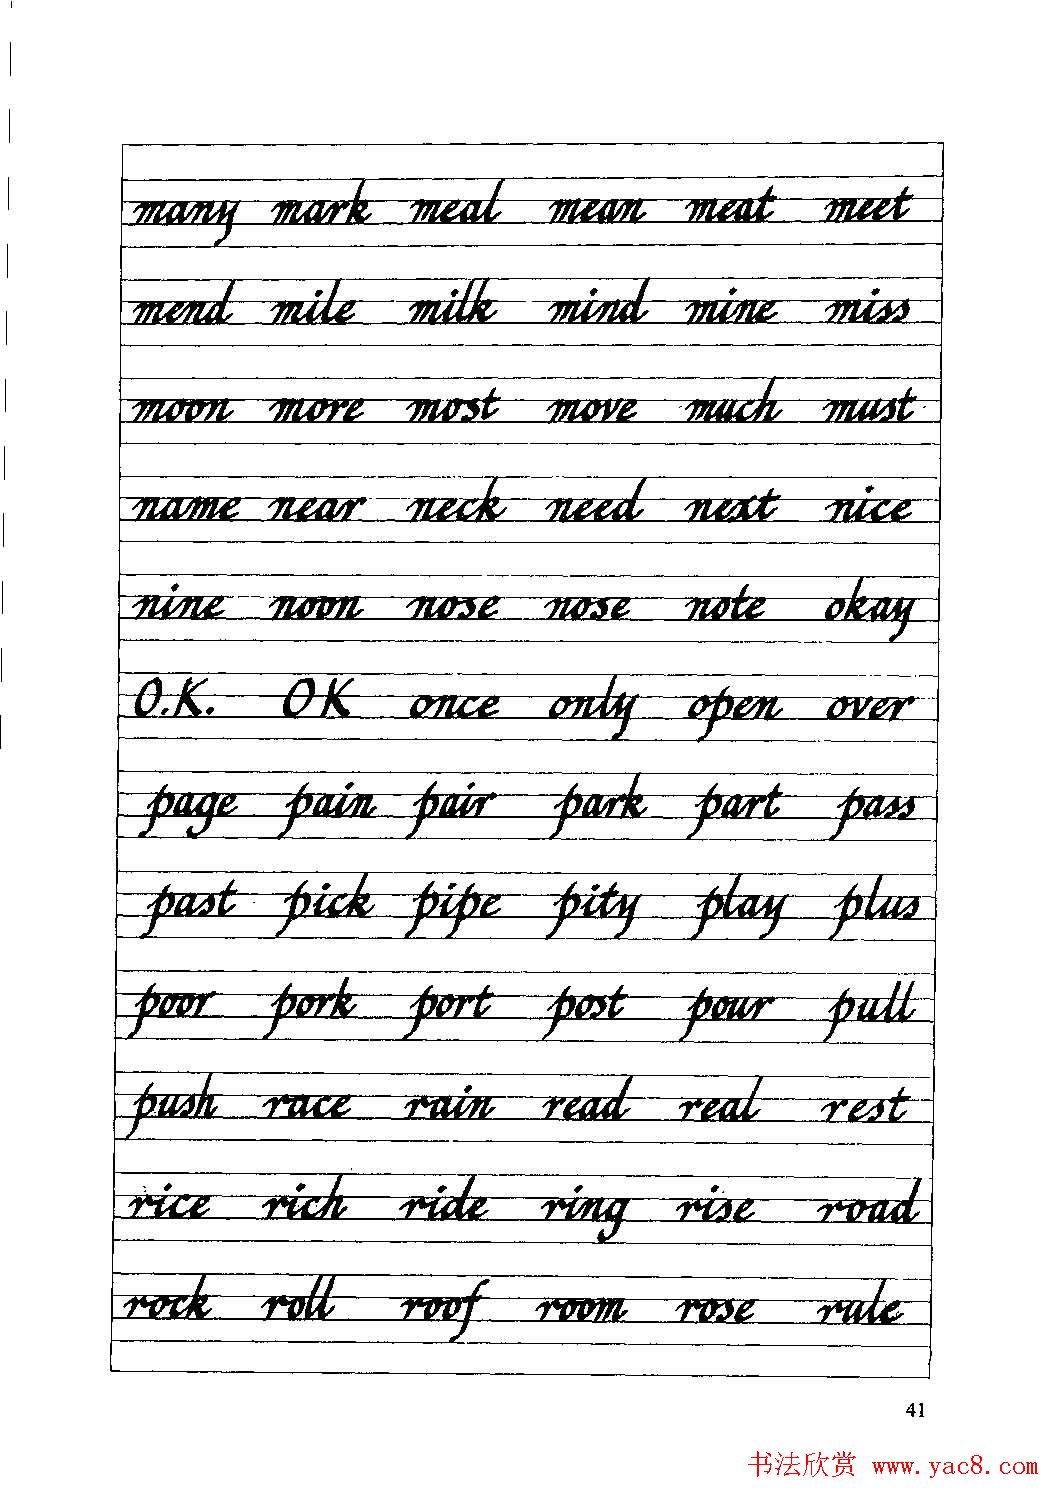 many mark meal mean meat meet
mend mile milk mind mine miss
moon more most move much must
name near neck need next nice
nine noon nose nose note okay
O.K. OK once only open over
page pain pair park part pass
past pick pipe pity play plus
poor pork port post pour pull
push race rain read real rest
rice rich ride ring rise road
rock roll roof room rose rule
41
书法欣赏 www.yac8.com